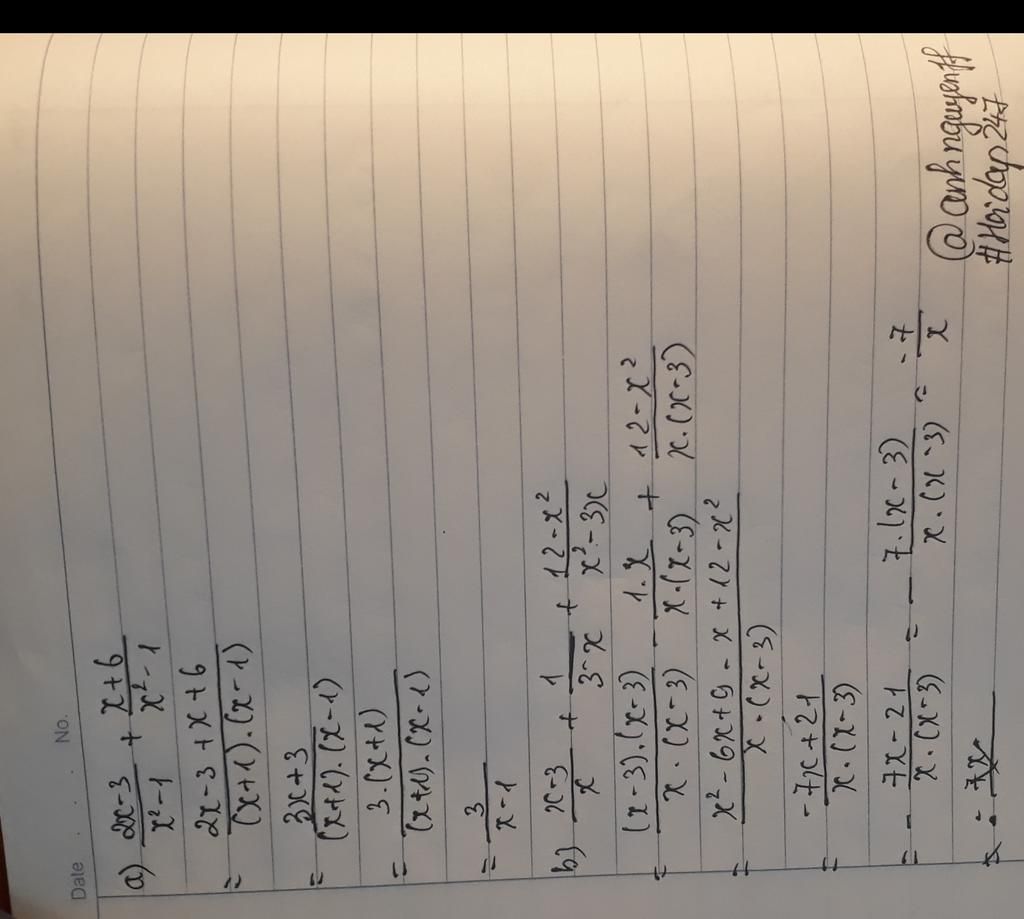 Date . . . No.
a) (2x-3)/(x²-1) + (x+6)/(x²-1)
= (2x-3+x+6)/((x+1).(x-1))
= (3x+3)/((x+1).(x-1))
= (3.(x+1))/((x+1).(x-1))
= 3/(x-1)
b) (x-3)/x + 1/(3-x) + (12-x²)/(x²-3x)
= ((x-3).(x-3))/(x.(x-3)) - (1.x)/(x.(x-3)) + (12-x²)/(x.(x-3))
= (x²-6x+9-x+12-x²)/(x.(x-3))
= (-7x+21)/(x.(x-3))
= - (7x-21)/(x.(x-3)) = - (7.(x-3))/(x.(x-3)) = -7/x
@anhnguyenff
#Hoidap247